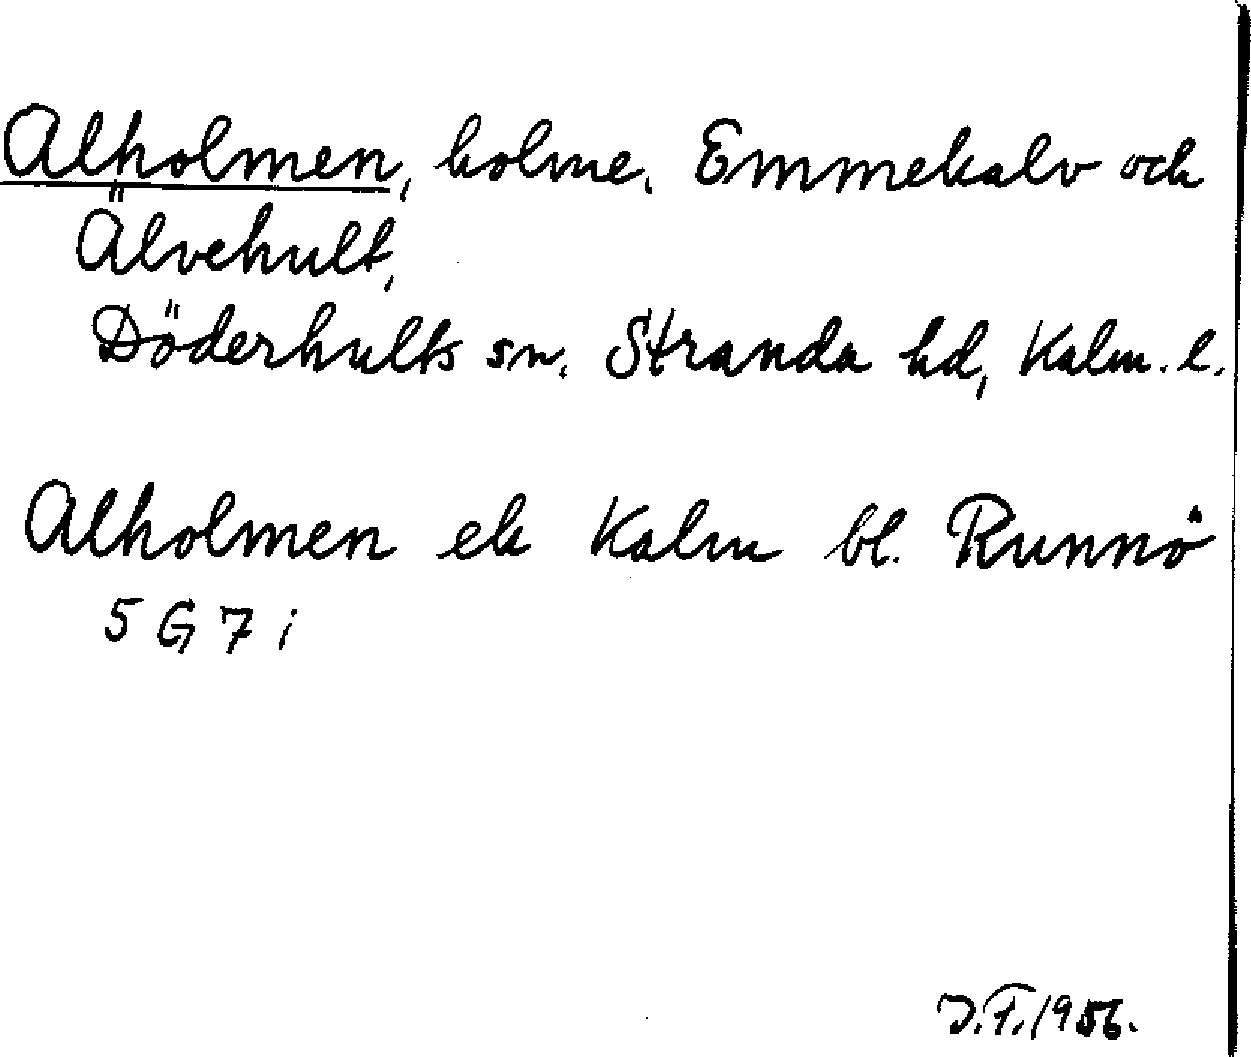 Alholmen, holme, Emmekalv och
Älvehult,
Döderhults sn, Stranda hd, Kalm. l.
Alholmen ek Kalm bl. Runnö
5 G 7 i
J.F. 1956.